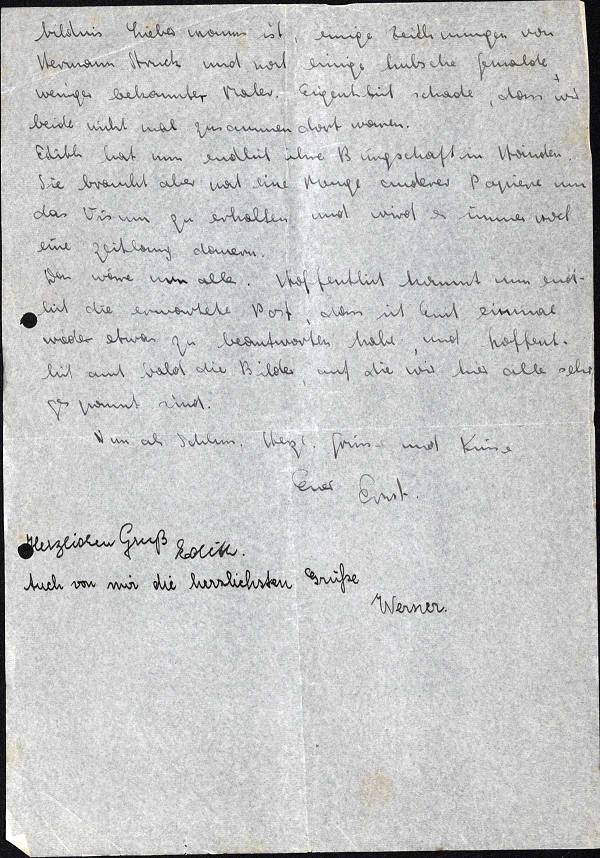 bildnis Liebermanns ist, einige Zeichnungen von
Hermann Struck und noch einige hübsche Gemälde
weniger bekannter Maler. Eigentlich schade, dass wir
beide nicht mal zusammen dort waren.
Edith hat nun endlich ihre Bürgschaft in Händen.
Sie braucht aber noch eine Menge anderer Papiere um
das Visum zu erhalten und wird es immer noch
eine Zeitlang dauern.
Das wäre nun alles. Hoffentlich kommt nun end-
lich die erwartete Post, dass ich Euch einmal
wieder etwas zu beantworten habe, und hoffent-
lich auch bald die Bilder, auf die wir hier alle sehr
gespannt sind.
Nun als Schluss. Herzl. Grüsse und Küsse
Euer Ernst.
Herzlichen Gruß Edith.
Auch von mir die herzlichsten Grüße
Werner.